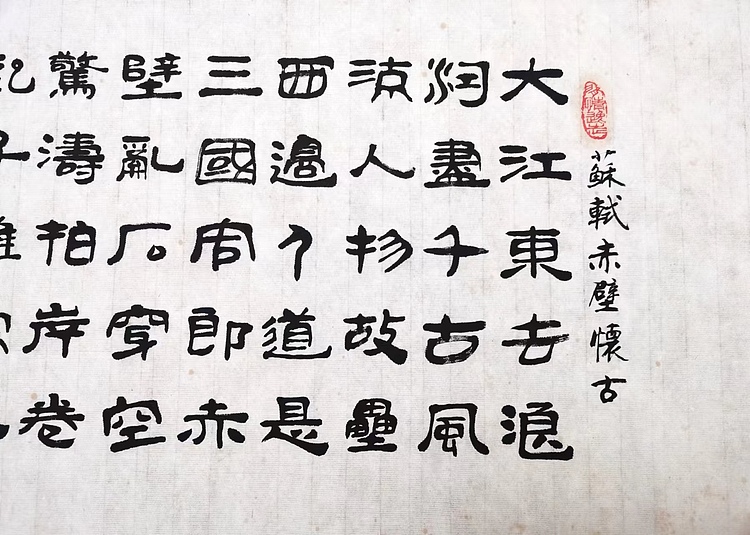 蘇軾赤壁懷古
大江東去浪
淘盡千古風
流人物故壘
西邊人道是
三國周郎赤
壁亂石穿空
驚濤拍岸卷